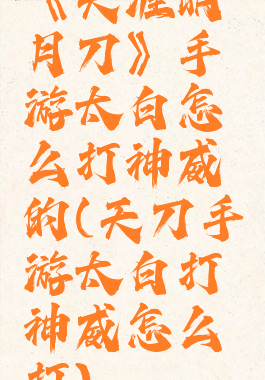 《天涯明
月刀》手
游太白怎
么打神威
的(天刀手
游太白打
神威怎么
打)